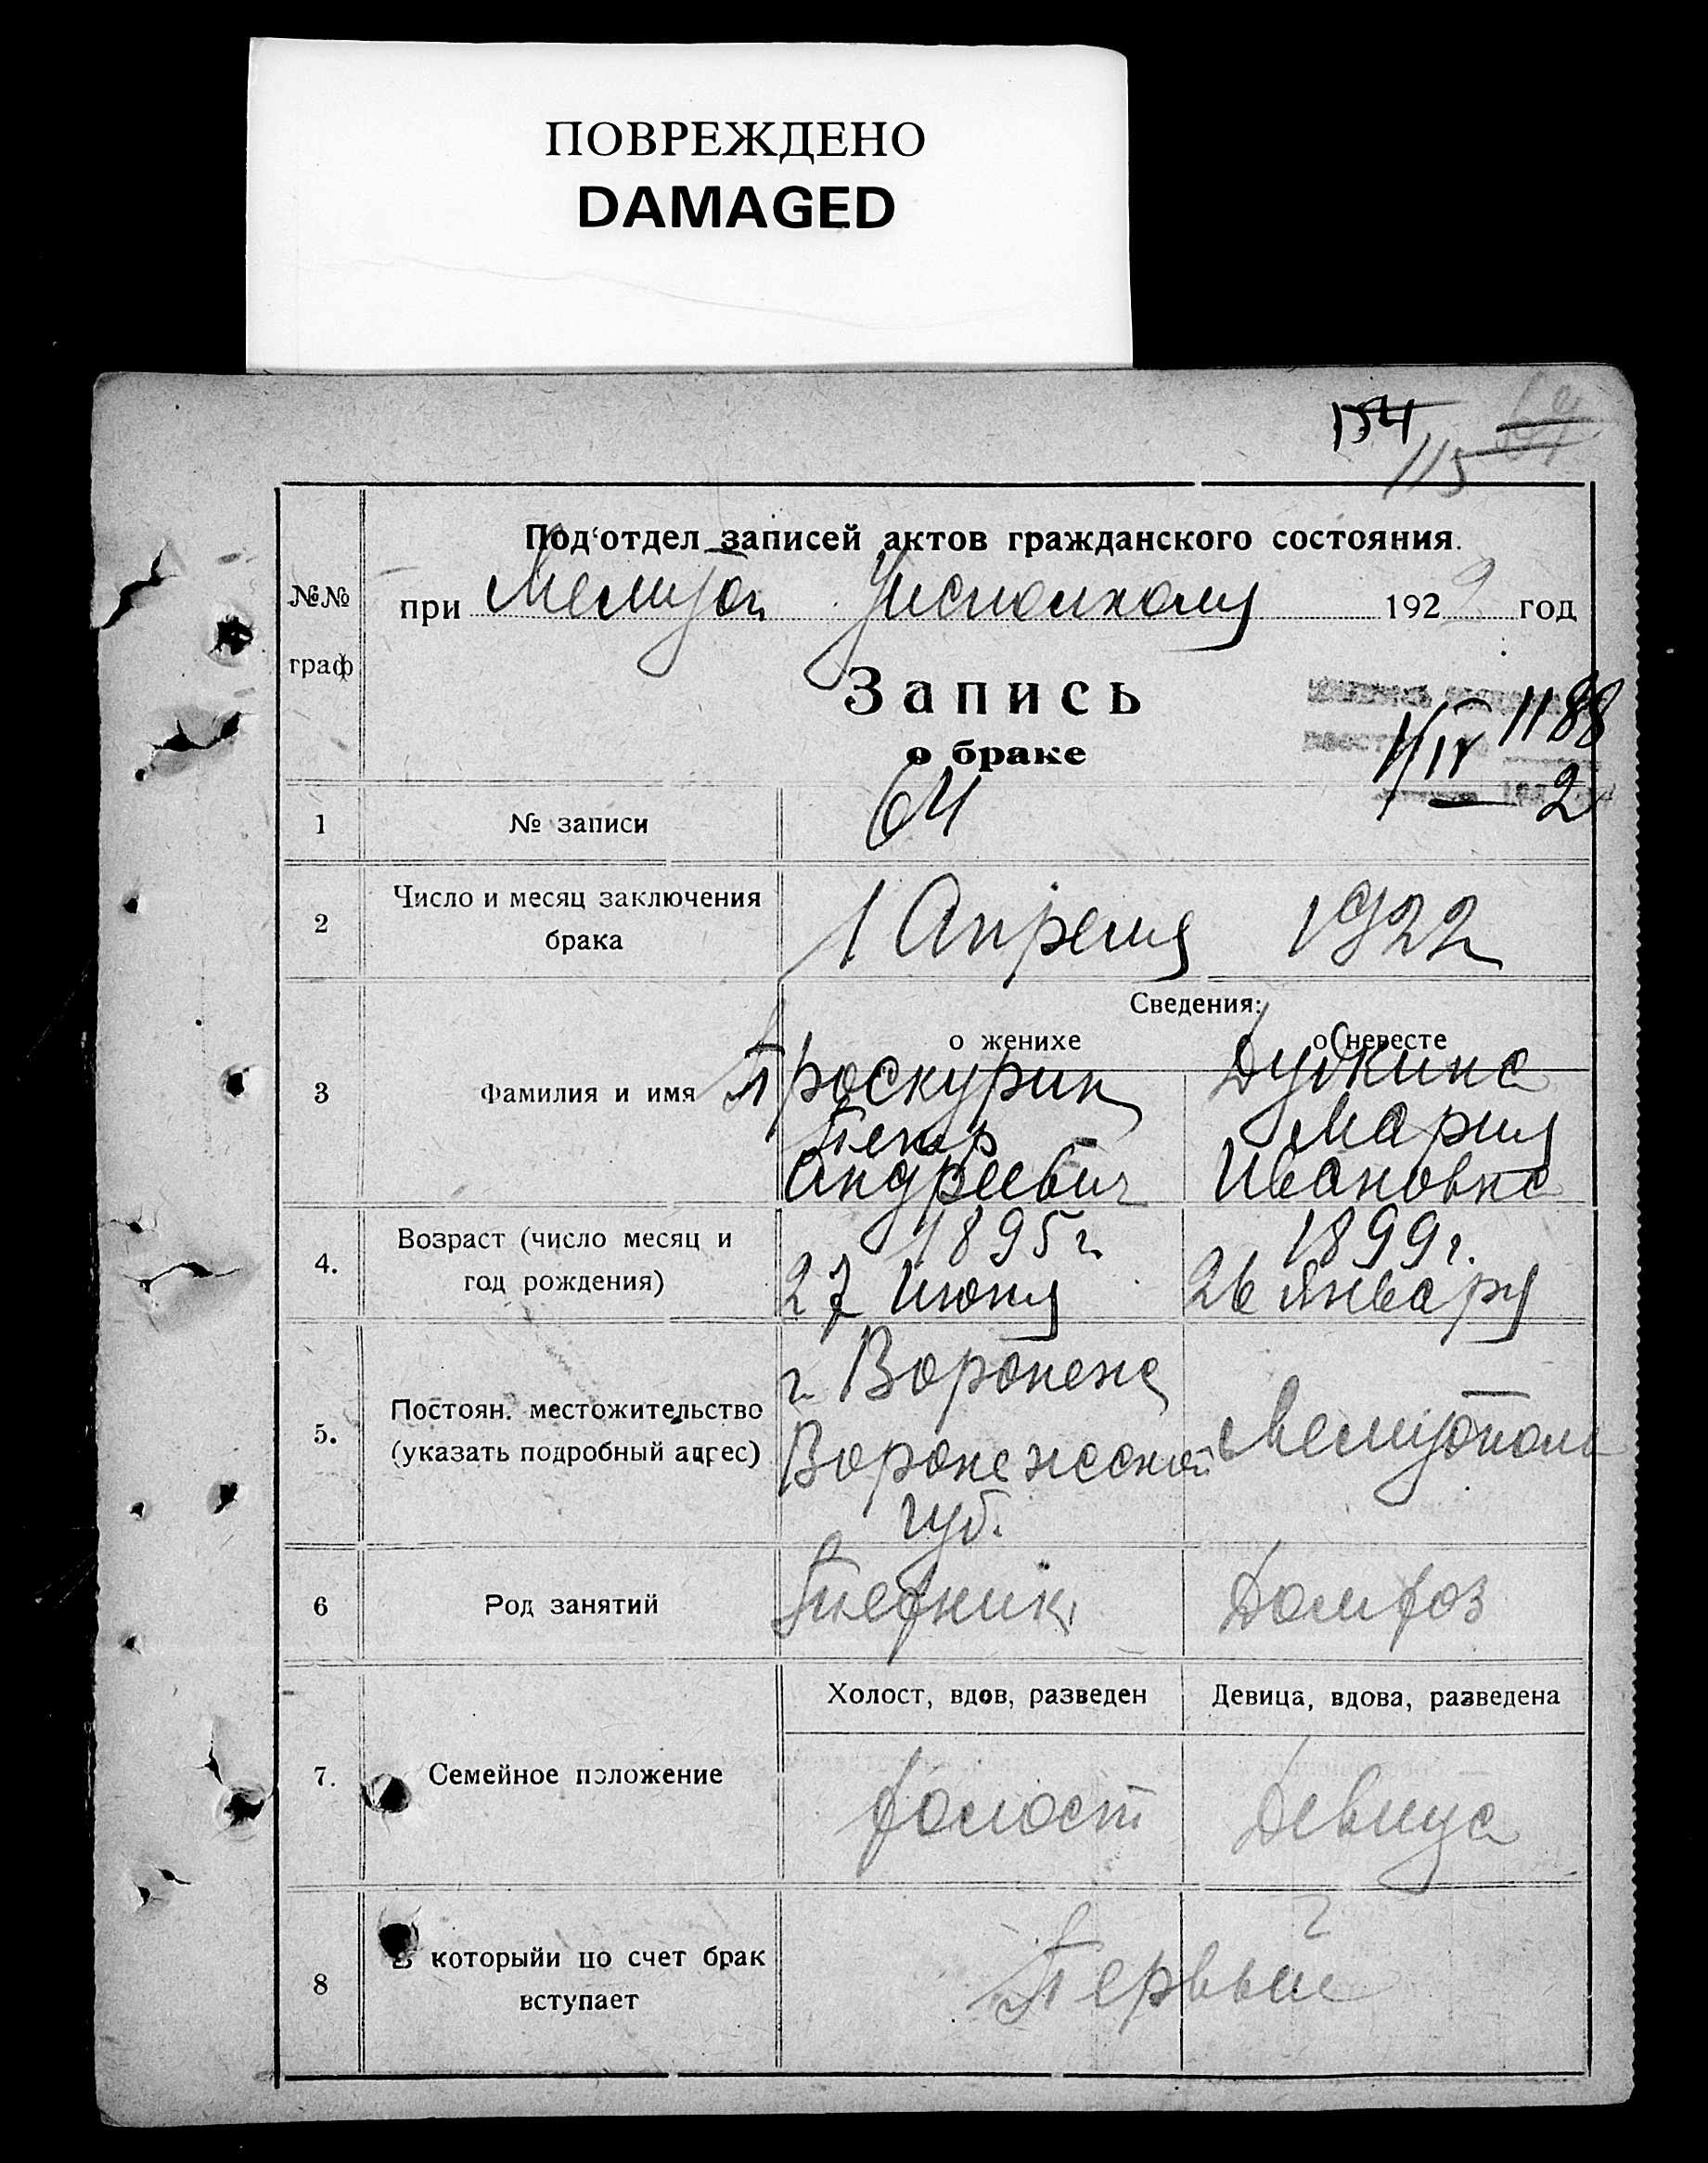 ПОВРЕЖДЕНО
DAMAGED
154
64
115
Под'отдел записей актов гражданского состояния.
№№
граф
при Мелитоп Уисполкому 1922 год
Запись
о браке
1188
1/IV 2
1 № записи 64
2 Число и месяц заключения
брака
1 Апреля 1922
Сведения:
о женихе о невесте
3 Фамилия и имя
Проскурин Дудкина
Петр Мария
Андреевич Ивановна
4. Возраст (число месяц и
год рождения)
1895 г. 1899 г.
27 Июня 26 Января
5. Постоян. местожительство
(указать подробный адрес)
г. Воронеж
Воронежской Мелитополь
губ.
6 Род занятий Домхоз
Холост, вдов, разведен Девица, вдова, разведена
7. Семейное положение холост Девица
8 В которыйи по счет брак
вступает
Первый